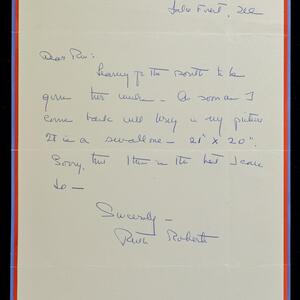 Dear Rev:
Leaving for the South to be
gone this week – As soon as I
come back will bring in my picture
It is a small one – 21" X 20".
Sorry, but this is the best I can
do –
Sincerely –
Ruth Roberts